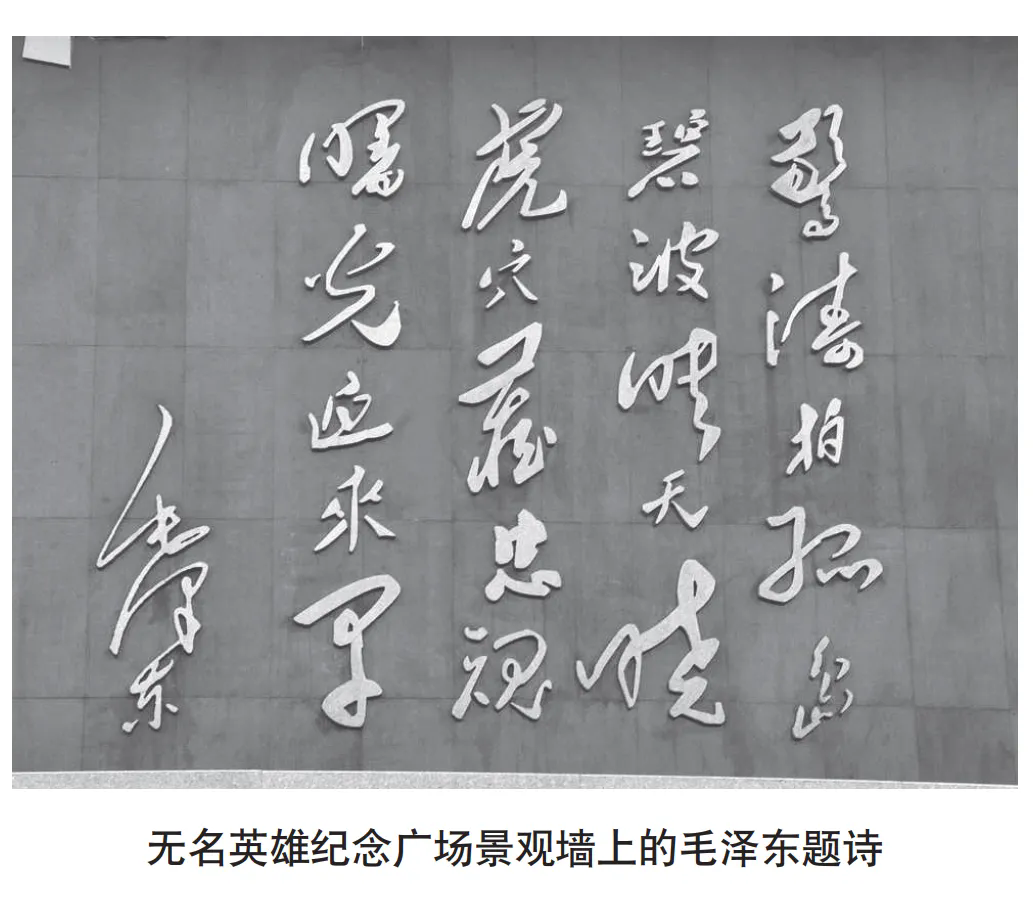 驚濤拍孤島
碧波映天曉
虎穴藏忠魂
曙光迎來早
毛澤東
无名英雄纪念广场景观墙上的毛泽东题诗